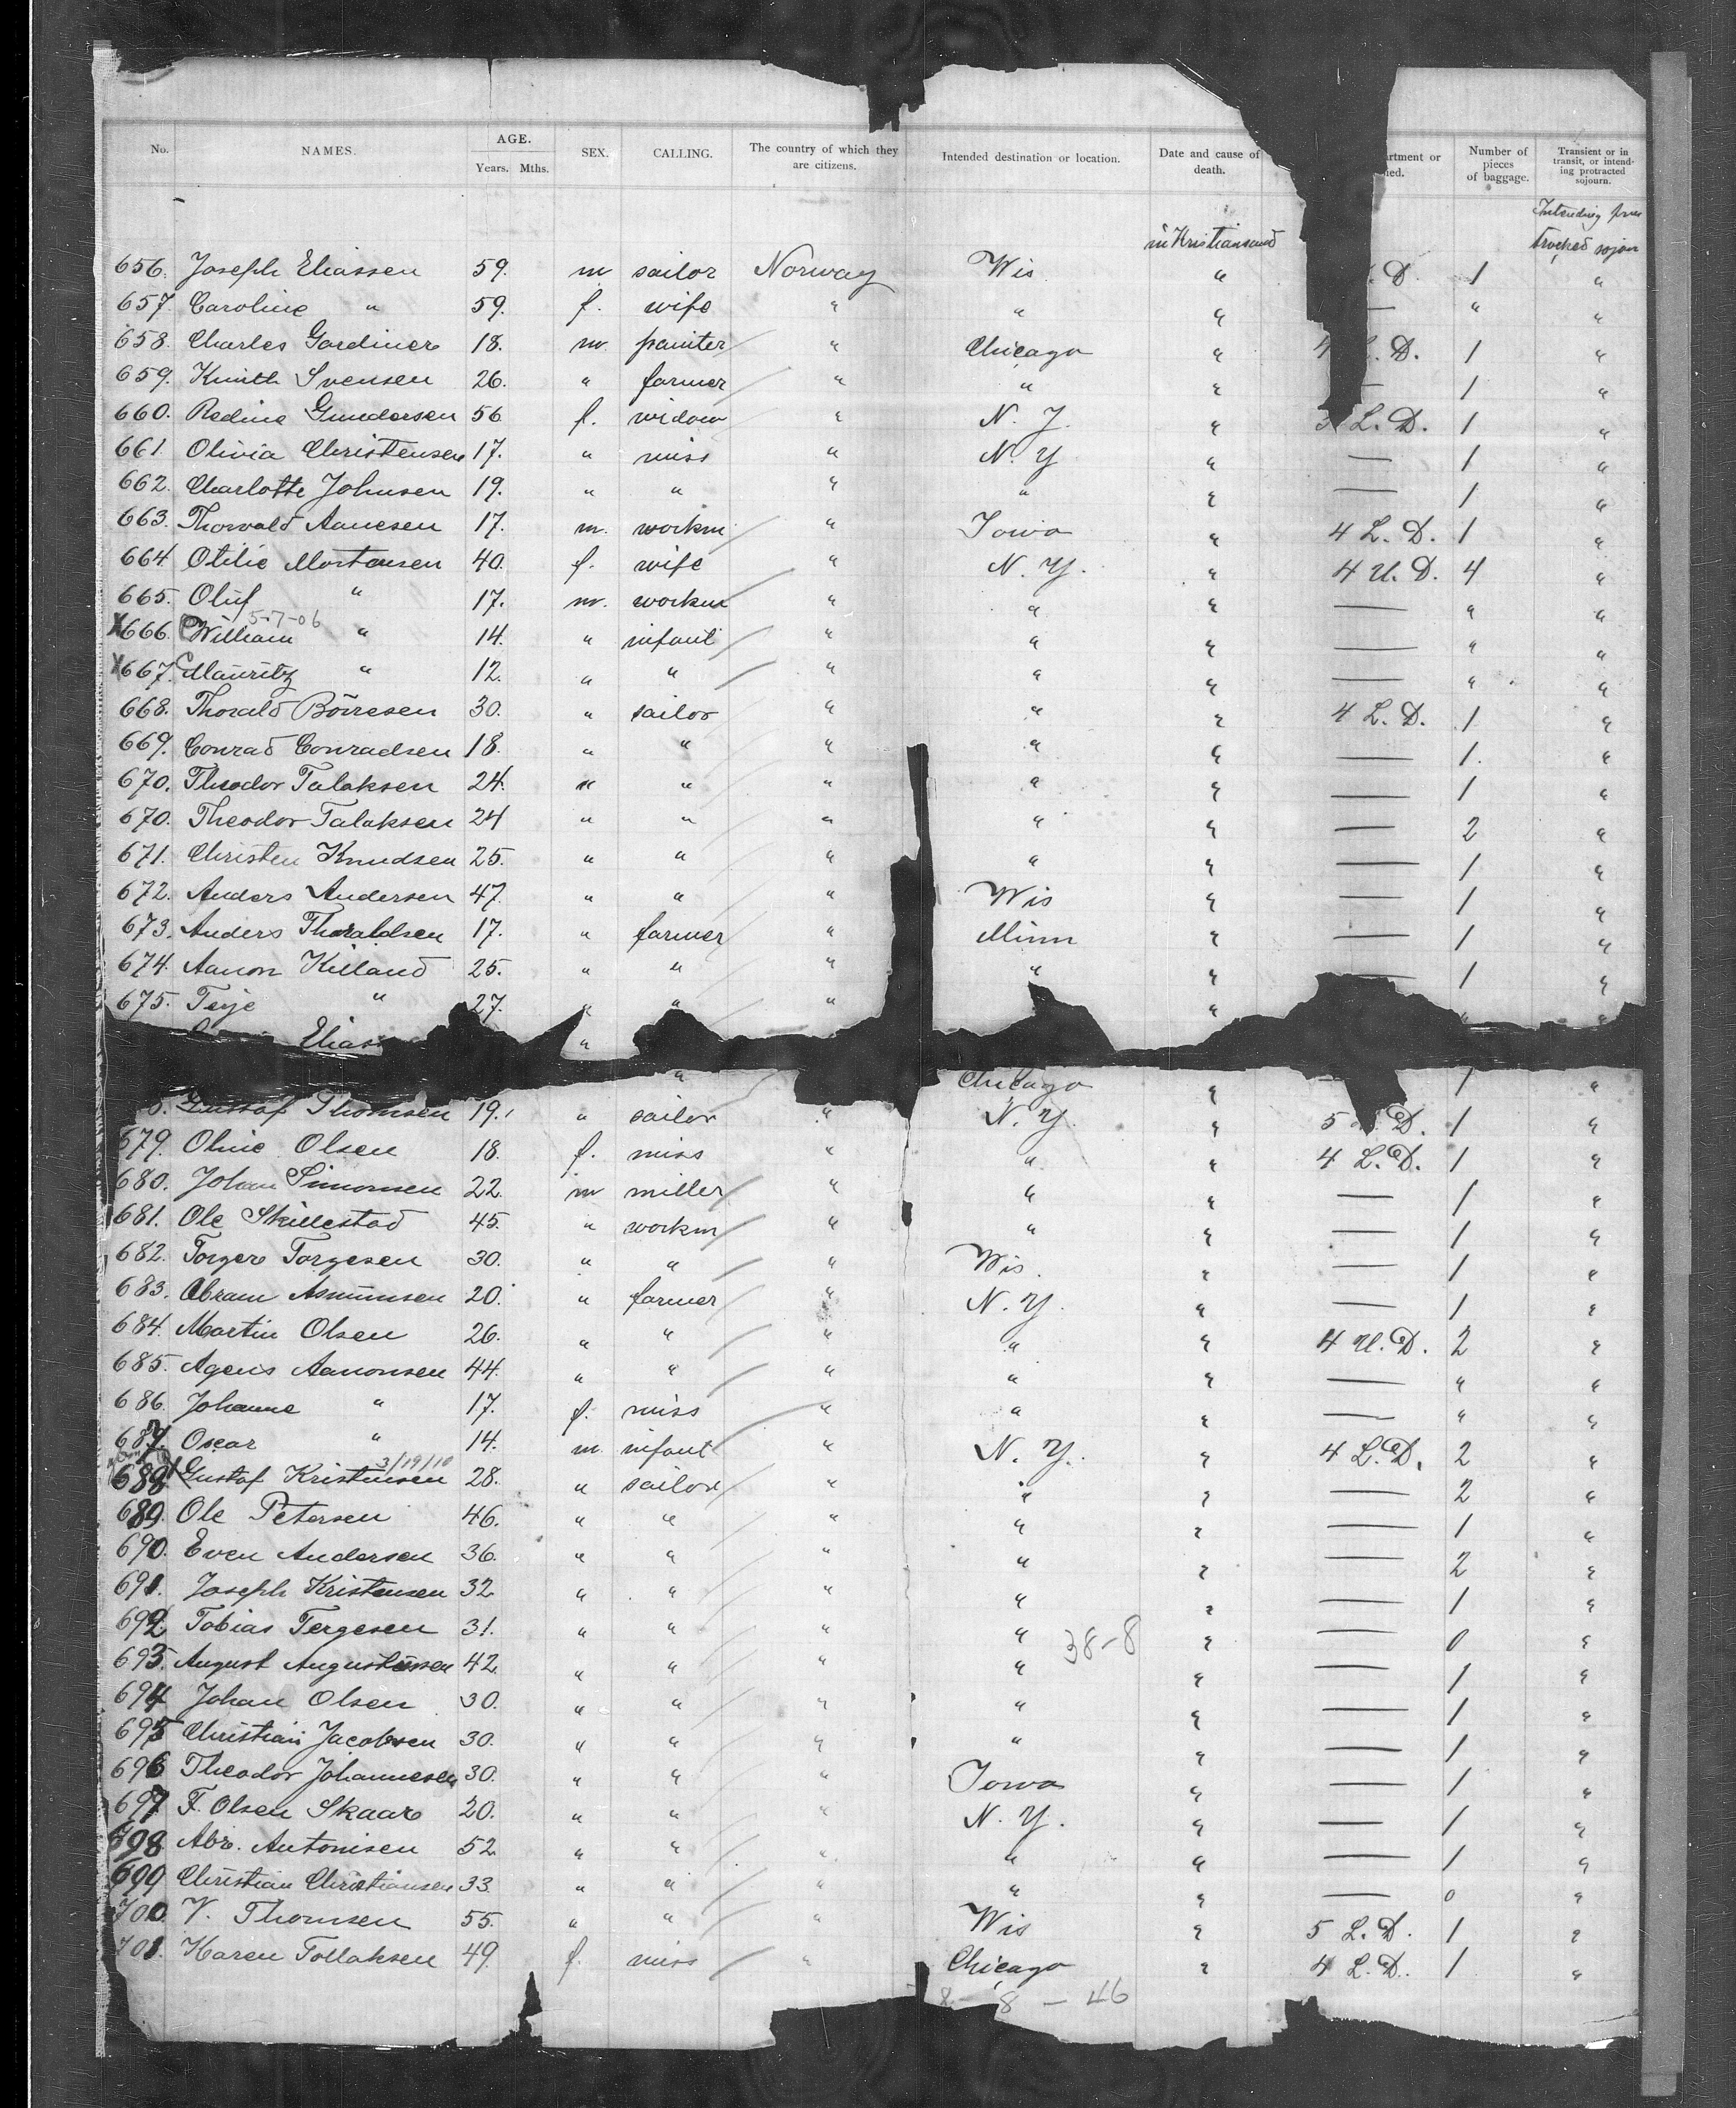 No. NAMES. AGE. Years. Mths. SEX. CALLING. The country of which they are citizens. Intended destination or location. Date and cause of death. artment or ied. Number of pieces of baggage. Transient or in transit, or intending protracted sojourn.
in Kristiansand Intending
656. Joseph Eliassen 59. m sailor Norway Wis " . D. 1 "
657. Caroline " 59. f. wife " " " — " "
658. Charles Gardiner 18. m. painter " Chicago " 4 L. D. 1 "
659. Knuth Svensen 26. " farmer " " " — 1 "
660. Redine Gundersen 56 f. widow " N. Y. " 3 L. D. 1 "
661. Olivia Christensen 17. " miss " N. Y " — 1 "
662. Charlotte Johnsen 19. " " " " " — 1 "
663. Thorvald Aanesen 17. m. workm " Iowa " 4 L. D. 1 "
664. Otilie Mortensen 40. f. wife " N. Y. " 4 U. D. 4 "
665. Oluf " 17. m. workm " " " — " "
5-7-06
X666. William " 14. " infant " " " — " "
X667. Mauritz " 12. " " " " " — " "
668. Thorald Börresen 30. " sailor " " " 4 L. D. 1 "
669. Conrad Conradsen 18. " " " " " — 1. "
670. Theodor Talaksen 24. " " " " " — 1 "
670. Theodor Talaksen 24 " " " " " — 2 "
671. Christen Knudsen 25. " " " " " — 1 "
672. Anders Andersen 47. " " " Wis " — 1 "
673. Anders Thoraldsen 17. " farmer " Minn " — 1 "
674. Aanon Killand 25. " " " " " — 1 "
675. Terje " 27. " " " " " "
Elias "
" Chicago " 1 "
8. Gustaf Thomsen 19. " sailor " N. Y. " 5 D. 1 "
679. Oline Olsen 18. f. miss " " " 4 L. D. 1 "
680. Johan Simonsen 22. m miller " " " — 1 "
681. Ole Skillestad 45. " workm " " " — 1 "
682. Torger Torgesen 30. " " " Wis. " — 1 "
683. Abram Asmunsen 20. " farmer " N. Y. " — 1 "
684. Martin Olsen 26. " " " " " 4 U. D. 2 "
685. Agens Aanonsen 44. " " " " " — " "
686. Johanne " 17. f. miss " " " — " "
687. Oscar " 14. m. infant " N. Y. " 4 L. D. 2 "
3/19/10
688. Gustaf Kristensen 28. " sailor " " " — 2 "
689. Ole Petersen 46. " " " " " — 1 "
690. Even Andersen 36. " " " " " — 2 "
691. Joseph Kristensen 32 " " " " " — 1 "
692 Tobias Tergesen 31. " " " " 38-8 " — 0 "
693. August Augustensen 42. " " " " " — 1 "
694 Johan Olsen 30. " " " " " — 1 "
695 Christian Jacobsen 30. " " " " " — 1 "
696 Theodor Johannesen 30. " " " Iowa " — 1 "
697 F. Olsen Skaar 20. " " " N. Y. " — 1 "
698 Abr. Antonisen 52 " " " " " — 1 "
699 Christian Christiansen 33. " " " " " — 0 "
700. V. Thomsen 55. " " " Wis " 5 L. D. 1 "
701. Karen Tollaksen 49. f. miss " Chicago " 4 L. D. 1 "
8 - 46